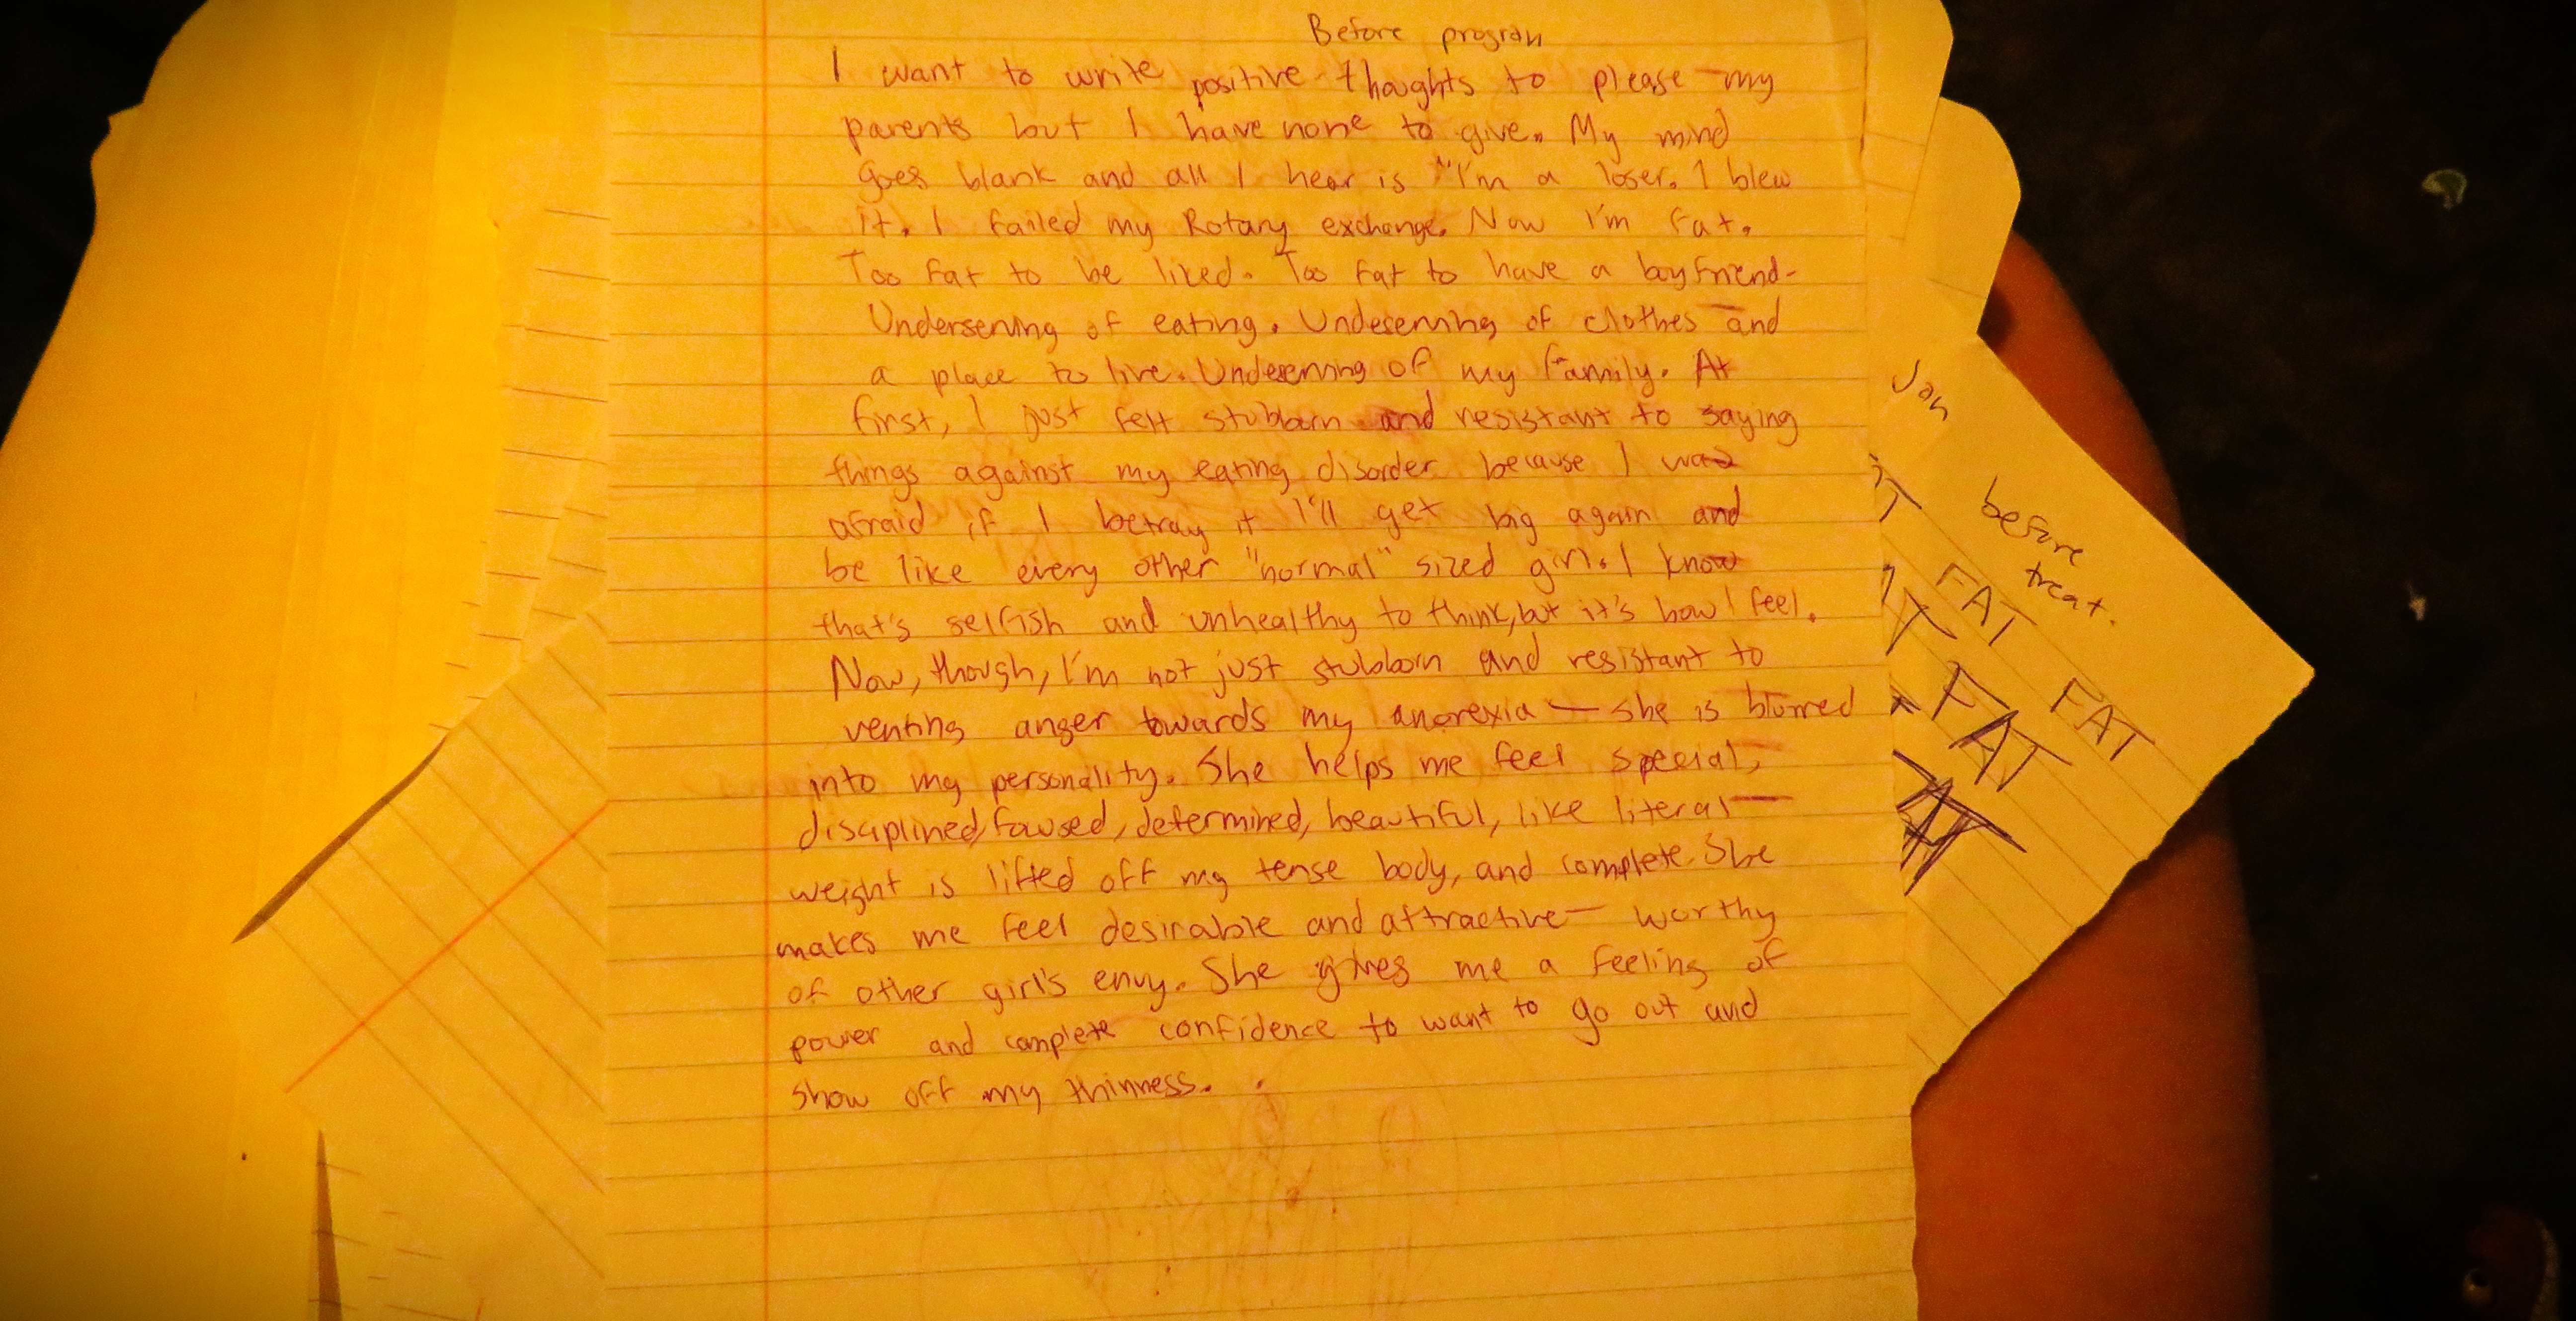 Before program
I want to write positive thoughts to please my
parents but I have none to give. My mind
goes blank and all I hear is "I'm a loser. I blew
it. I failed my Rotary exchange. Now I'm fat.
Too fat to be liked. Too fat to have a boyfriend-
Underserving of eating. Undeserving of clothes and
a place to live. Undeserving of my family. At
first, I just felt stubborn and resistant to saying
things against my eating disorder because I was
afraid if I betray it I'll get big again and
be like every other "normal" sized girl. I know
that's selfish and unhealthy to think, but it's how I feel.
Now, though, I'm not just stubborn and resistant to
venting anger towards my anorexia — she is blurred
into my personality. She helps me feel special,
disciplined, focused, determined, beautiful, like literal
weight is lifted off my tense body, and complete. She
makes me feel desirable and attractive — worthy
of other girl's envy. She gives me a feeling of
power and complete confidence to want to go out and
show off my thinness.
Jan
before
treat.
FAT
FAT
FAT